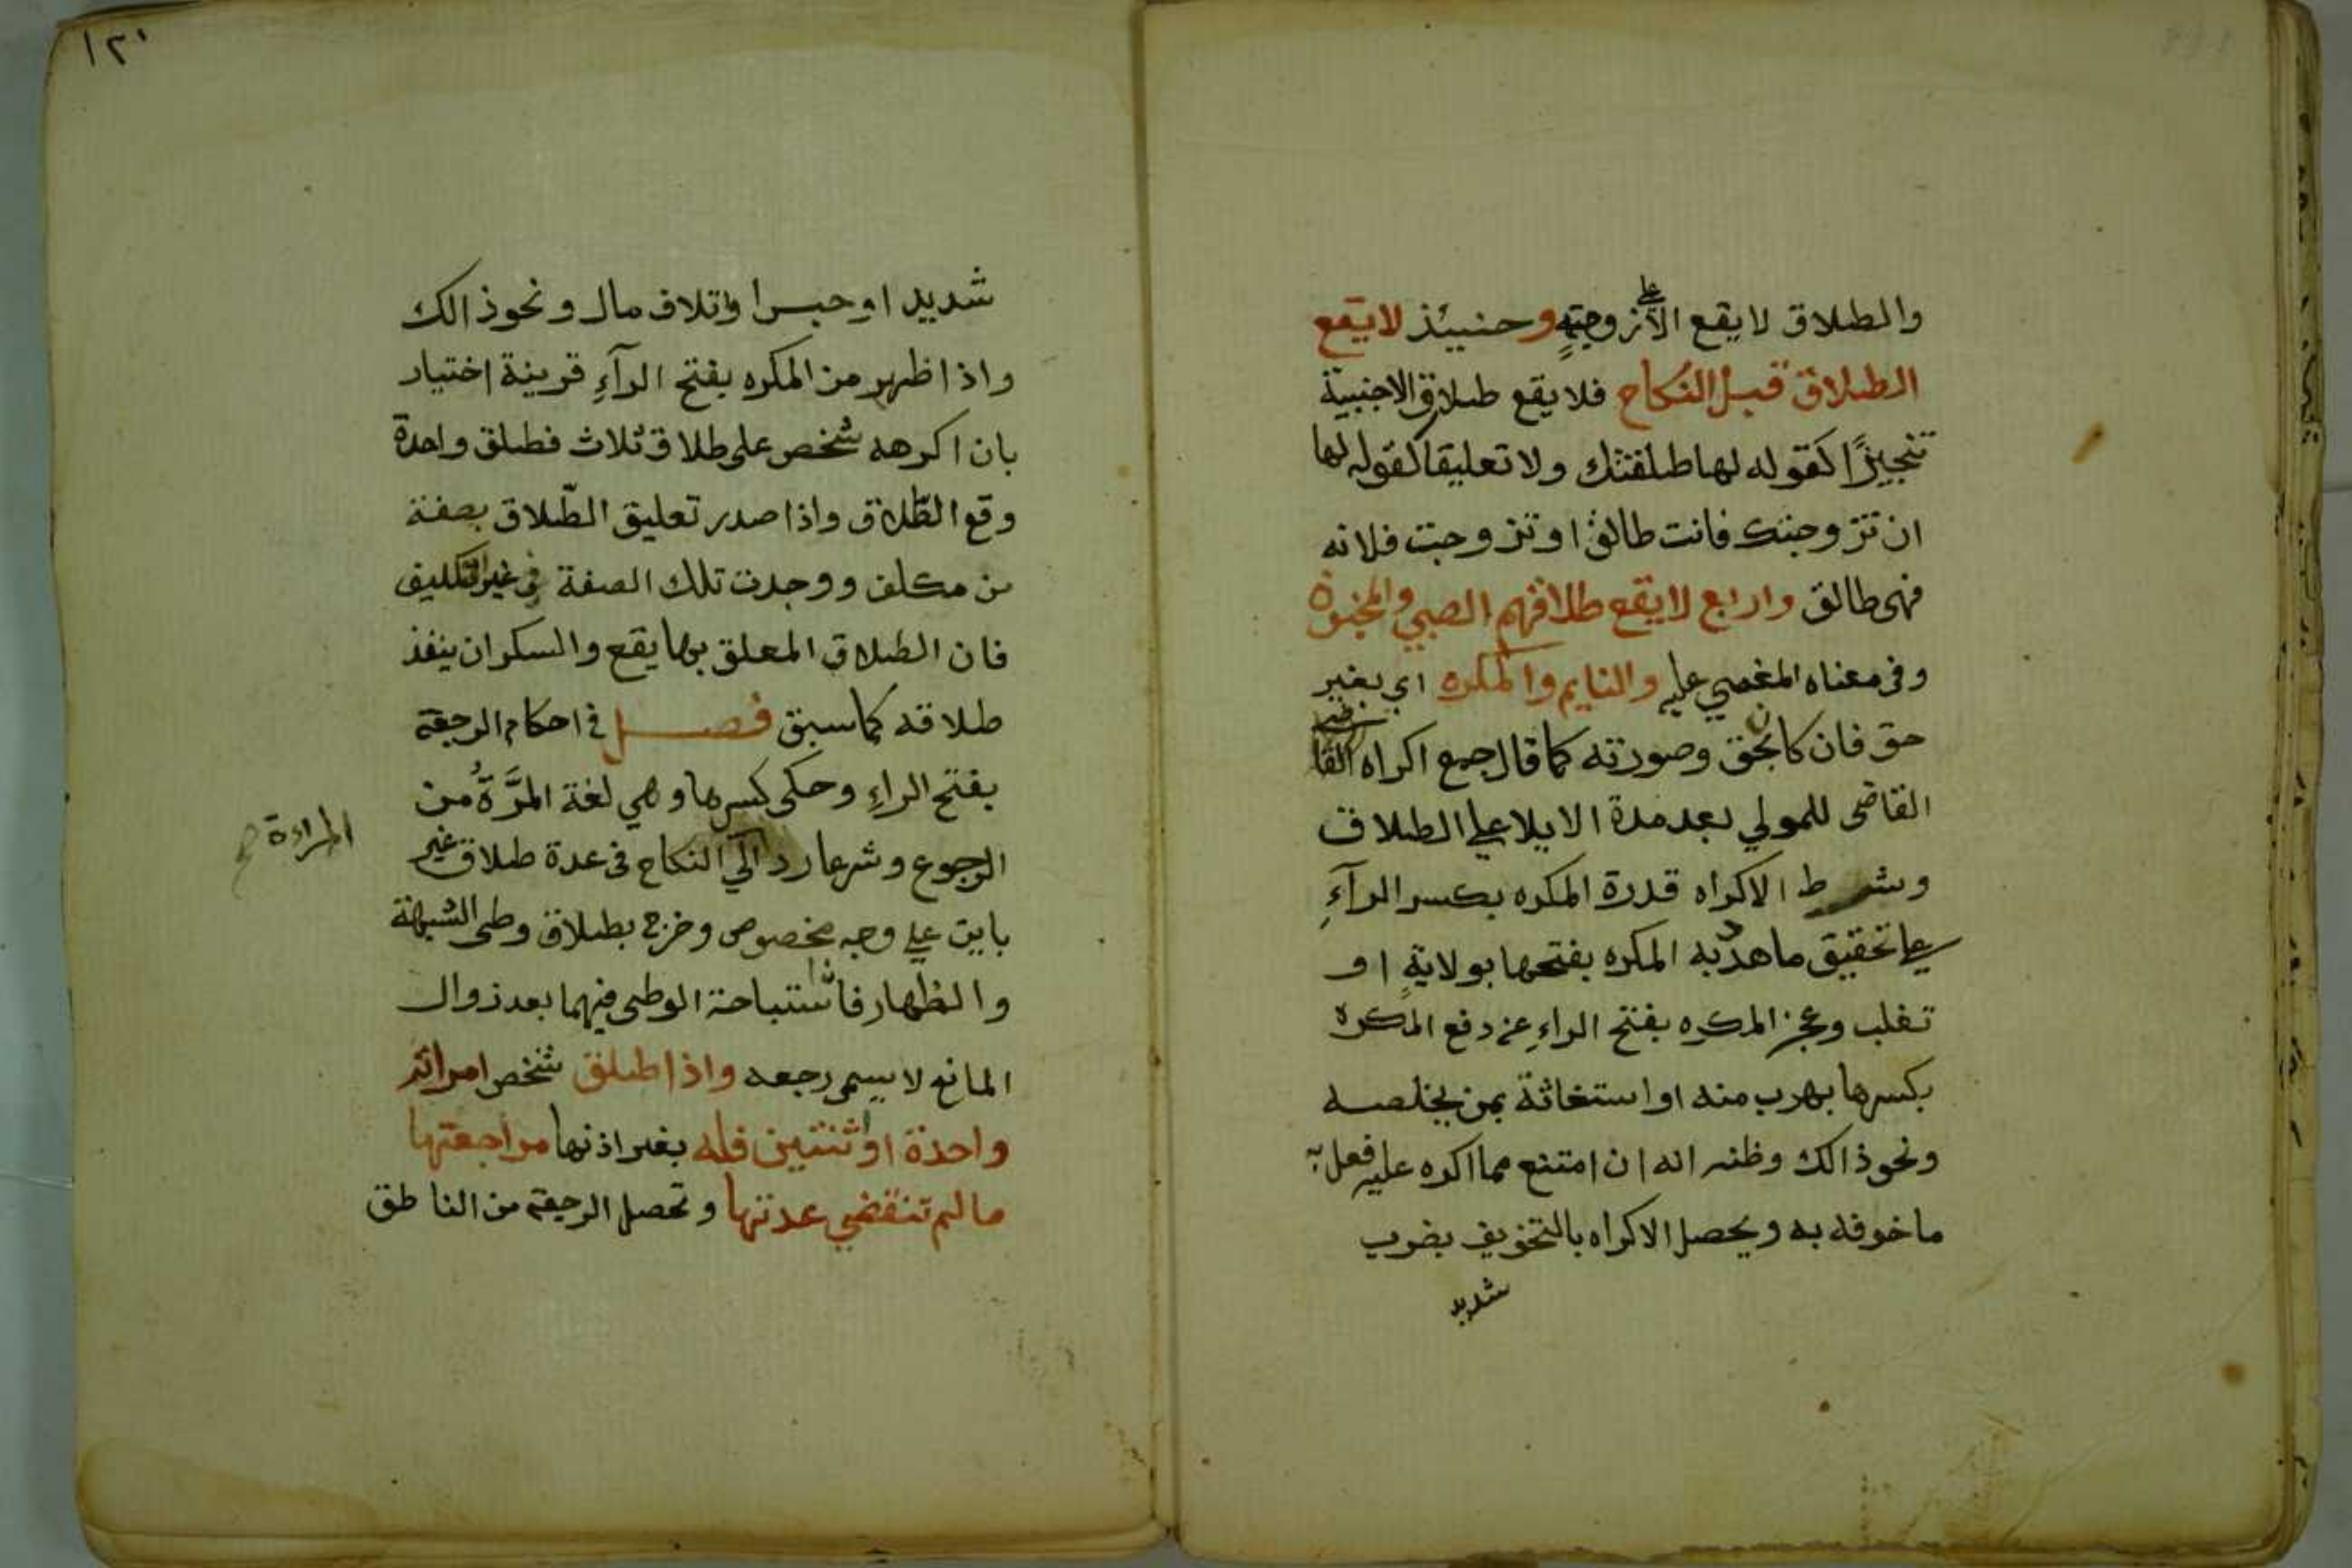 والطلاق لا يقع الا على زوجته وحنييذ لا يقع
الطلاق قبل النكاح فلا يقع طلاق الاجنبية
تنجيزًا كقوله لها طلقتك ولا تعليقا كقوله لها
ان تزوجتك فانت طالق او تزوجت فلانه
فهي طالق واربع لا يقع طلاقهم الصبي والمجنون
وفي معناه المغمي عليه والنايم والمكره اي بغير
حق فان كان بحق وصورته كما قال جمع اكراه
القاضي للمولي بعد مدة الايلا علي الطلاق
وشرط الاكراه قدرة المكره بكسر الرآءِ
علي تحقيق ما هدد به المكره بفتحها بولايةٍ او
تغلب وعجز المكره بفتح الراءِ عن دفع المكره
بكسرها بهرب منه او استغاثة بمن يخلصه
ونحو ذالك وظنه انه ان امتنع مما اكره عليه فعل به
ما خوفه به ويحصل الاكراه بالتخويف بضرب
شديد
١٢٠
شديد او حبس او اتلاف مال ونحو ذالك
واذا ظهر من المكره بفتح الرآءِ قرينة اختيار
بان اكرهه شخص على طلاق ثلاث فطلق واحدة
وقع الطّلاق واذا صدر تعليق الطّلاق بصفة
من مكلف ووجدت تلك الصفة في غير التكليف
فان الطلاق المعلق بها يقع والسكران ينفذ
طلاقه كما سبق فصل في احكام الرجعة
بفتح الراءِ وحكى كسرها وهي لغة المَرَّةُ من
الرجوع وشرعا رد الي النكاح في عدة طلاق غير
المراءة
باين علي وجه مخصوص وخرج بطلاق وطى الشبهة
والظهار فان استباحة الوطى فيهما بعد زوال
المانع لا يسمى رجعه واذا طلق شخص امراته
واحدة او اثنتين فله بغير اذنها مراجعتها
ما لم تنقضي عدتها وتحصل الرجعة من الناطق